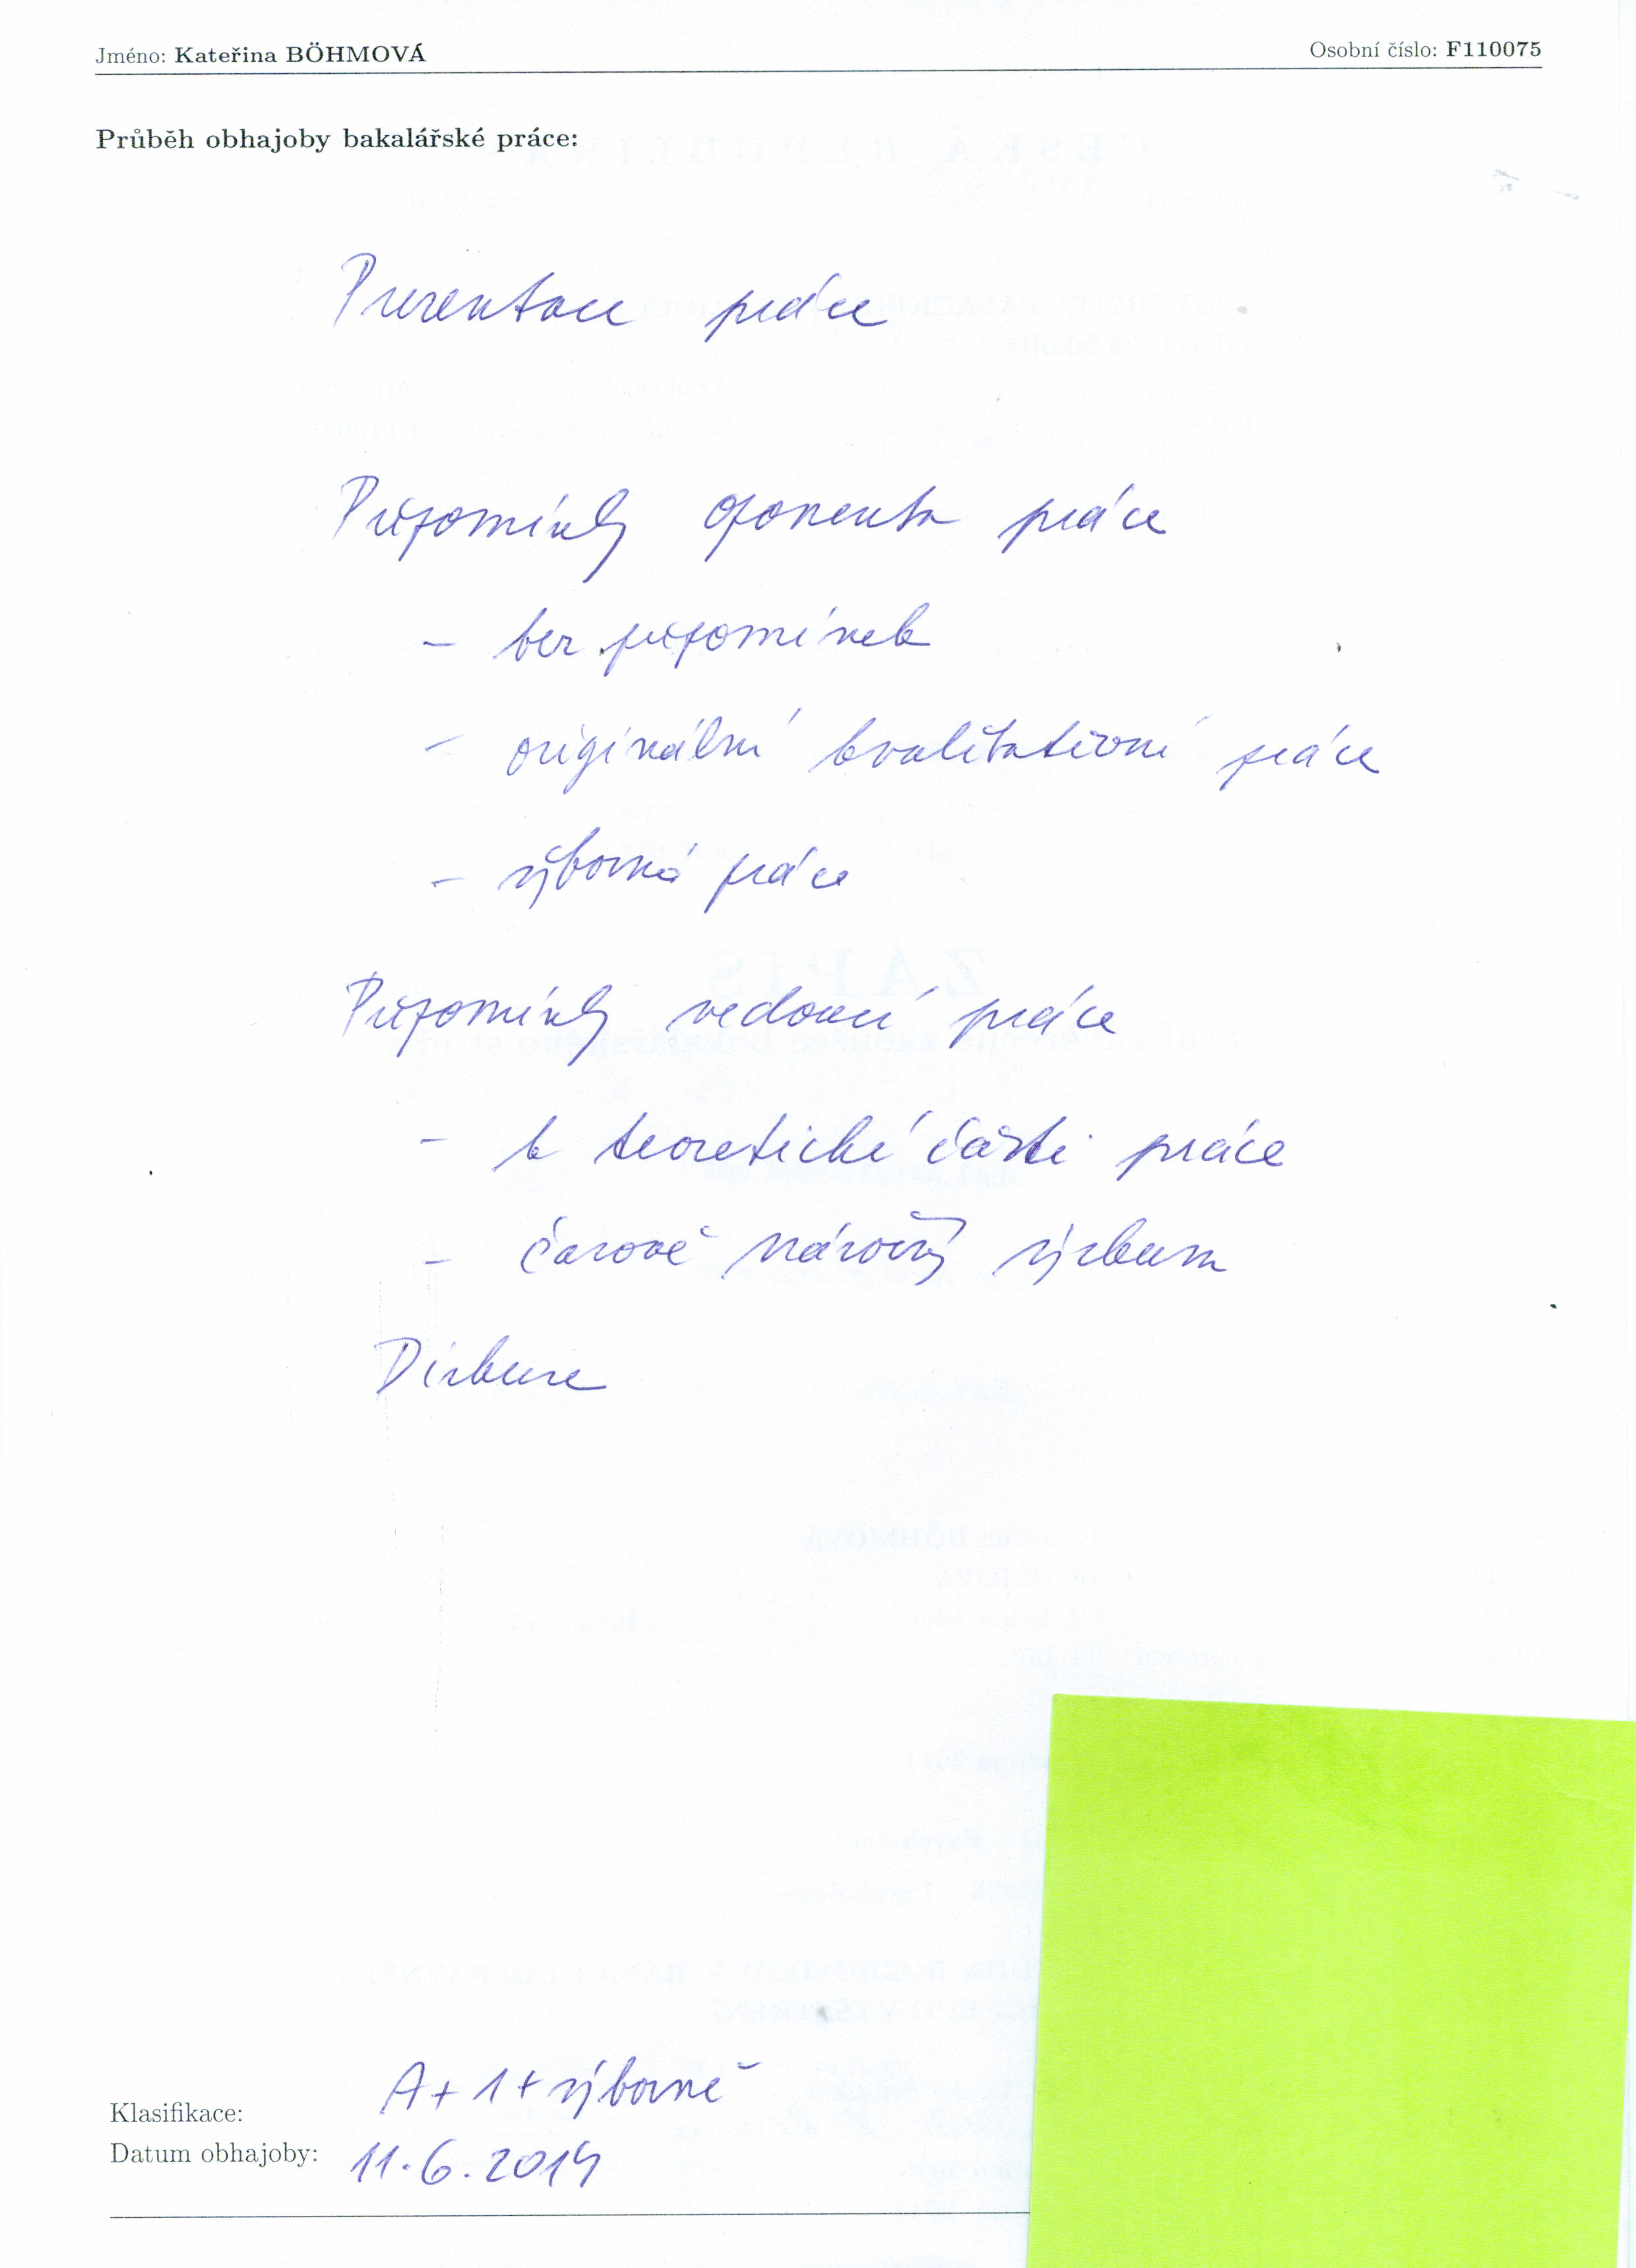 Jméno: Kateřina BÖHMOVÁ Osobní číslo: F110075
Průběh obhajoby bakalářské práce:
Prezentace práce
Připomínky oponenta práce
- bez připomínek
- originální kvalitativní práce
- výborná práce
Připomínky vedoucí práce
- k teoretické části práce
- časově náročný výzkum
Diskuse
Klasifikace: A + 1 + výborně
Datum obhajoby: 11.6.2014